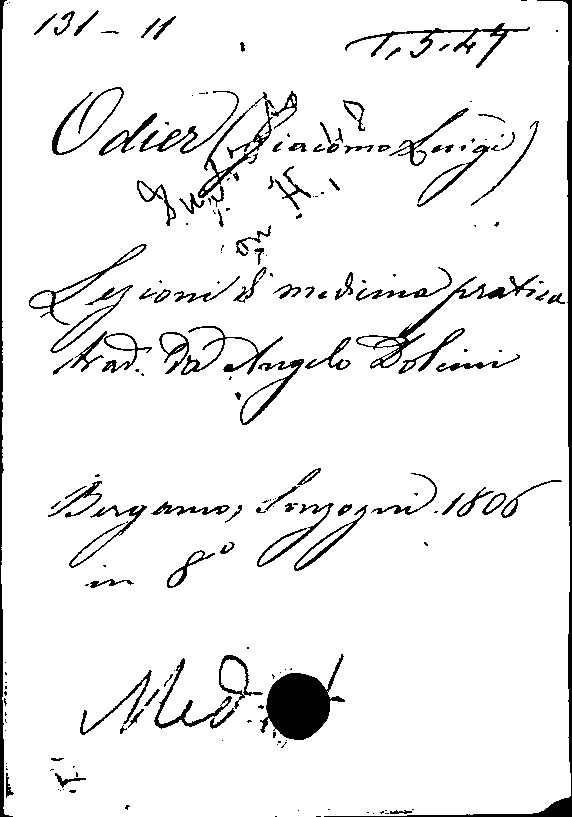 131 - 11
T, 5, 47
Odier (Giacomo Luigi)
Lezioni di medicina pratica
trad. da Angelo Dolcini
Bergamo, Sonzogni 1806
in 8°
Med